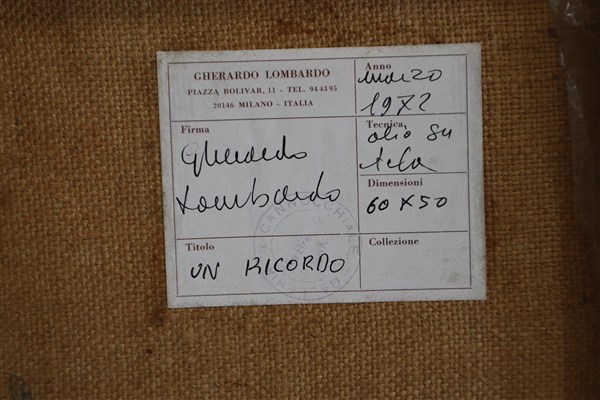 GHERARDO LOMBARDO
PIAZZA BOLIVAR, 11 - TEL. 94 43 95
20146 MILANO - ITALIA
Anno
marzo
1972
Firma
Gherardo
Lombardo
Tecnica
olio su
tela
Dimensioni
60 X 50
Titolo
UN RICORDO
Collezione